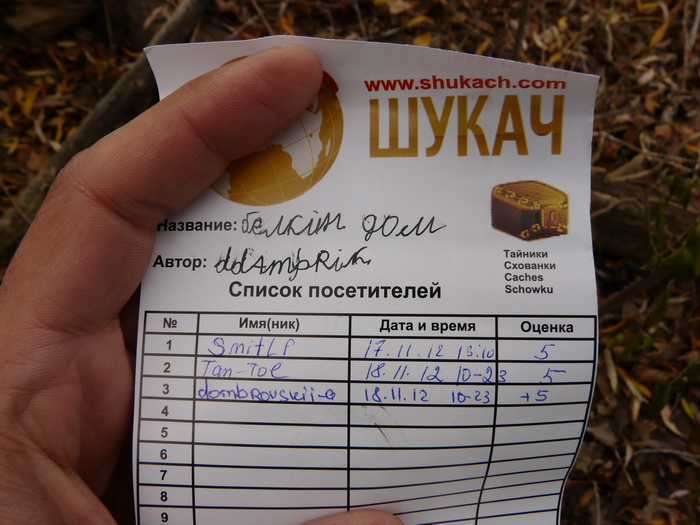 www.shukach.com
ШУКАЧ
Название: белкін дом
Автор:
Тайники
Схованки
Caches
Schowku
Список посетителей
№ Имя(ник) Дата и время Оценка
1 SmitLP 17.11.12 13:10 5
2 Tan-Tol 18.11.12 10-23 5
3 dombrovskii-a 18.11.12 10-23 +5
4
5
6
7
8
9